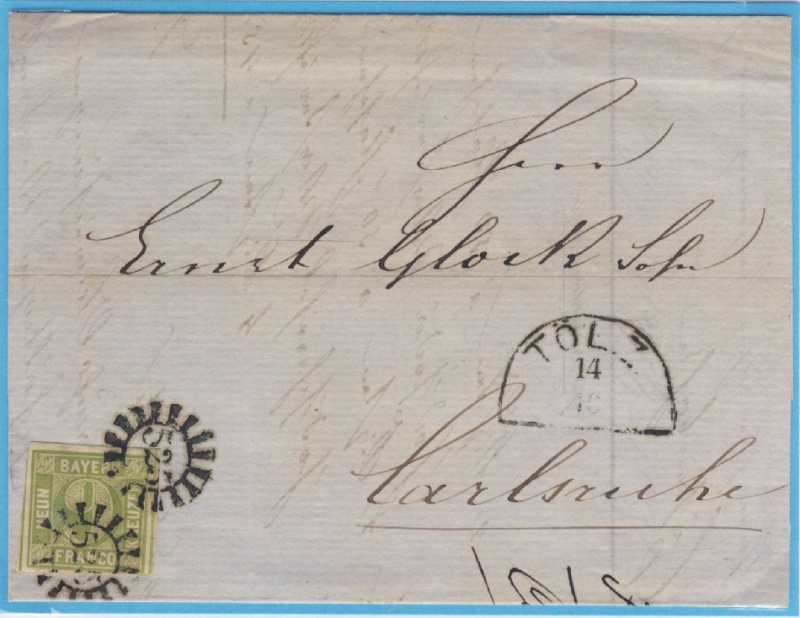 Herrn
Ernst Glock Sohn
TÖLZ
14
10
Carlsruhe
BAYERN
NEUN
9
KREUZER
FRANCO